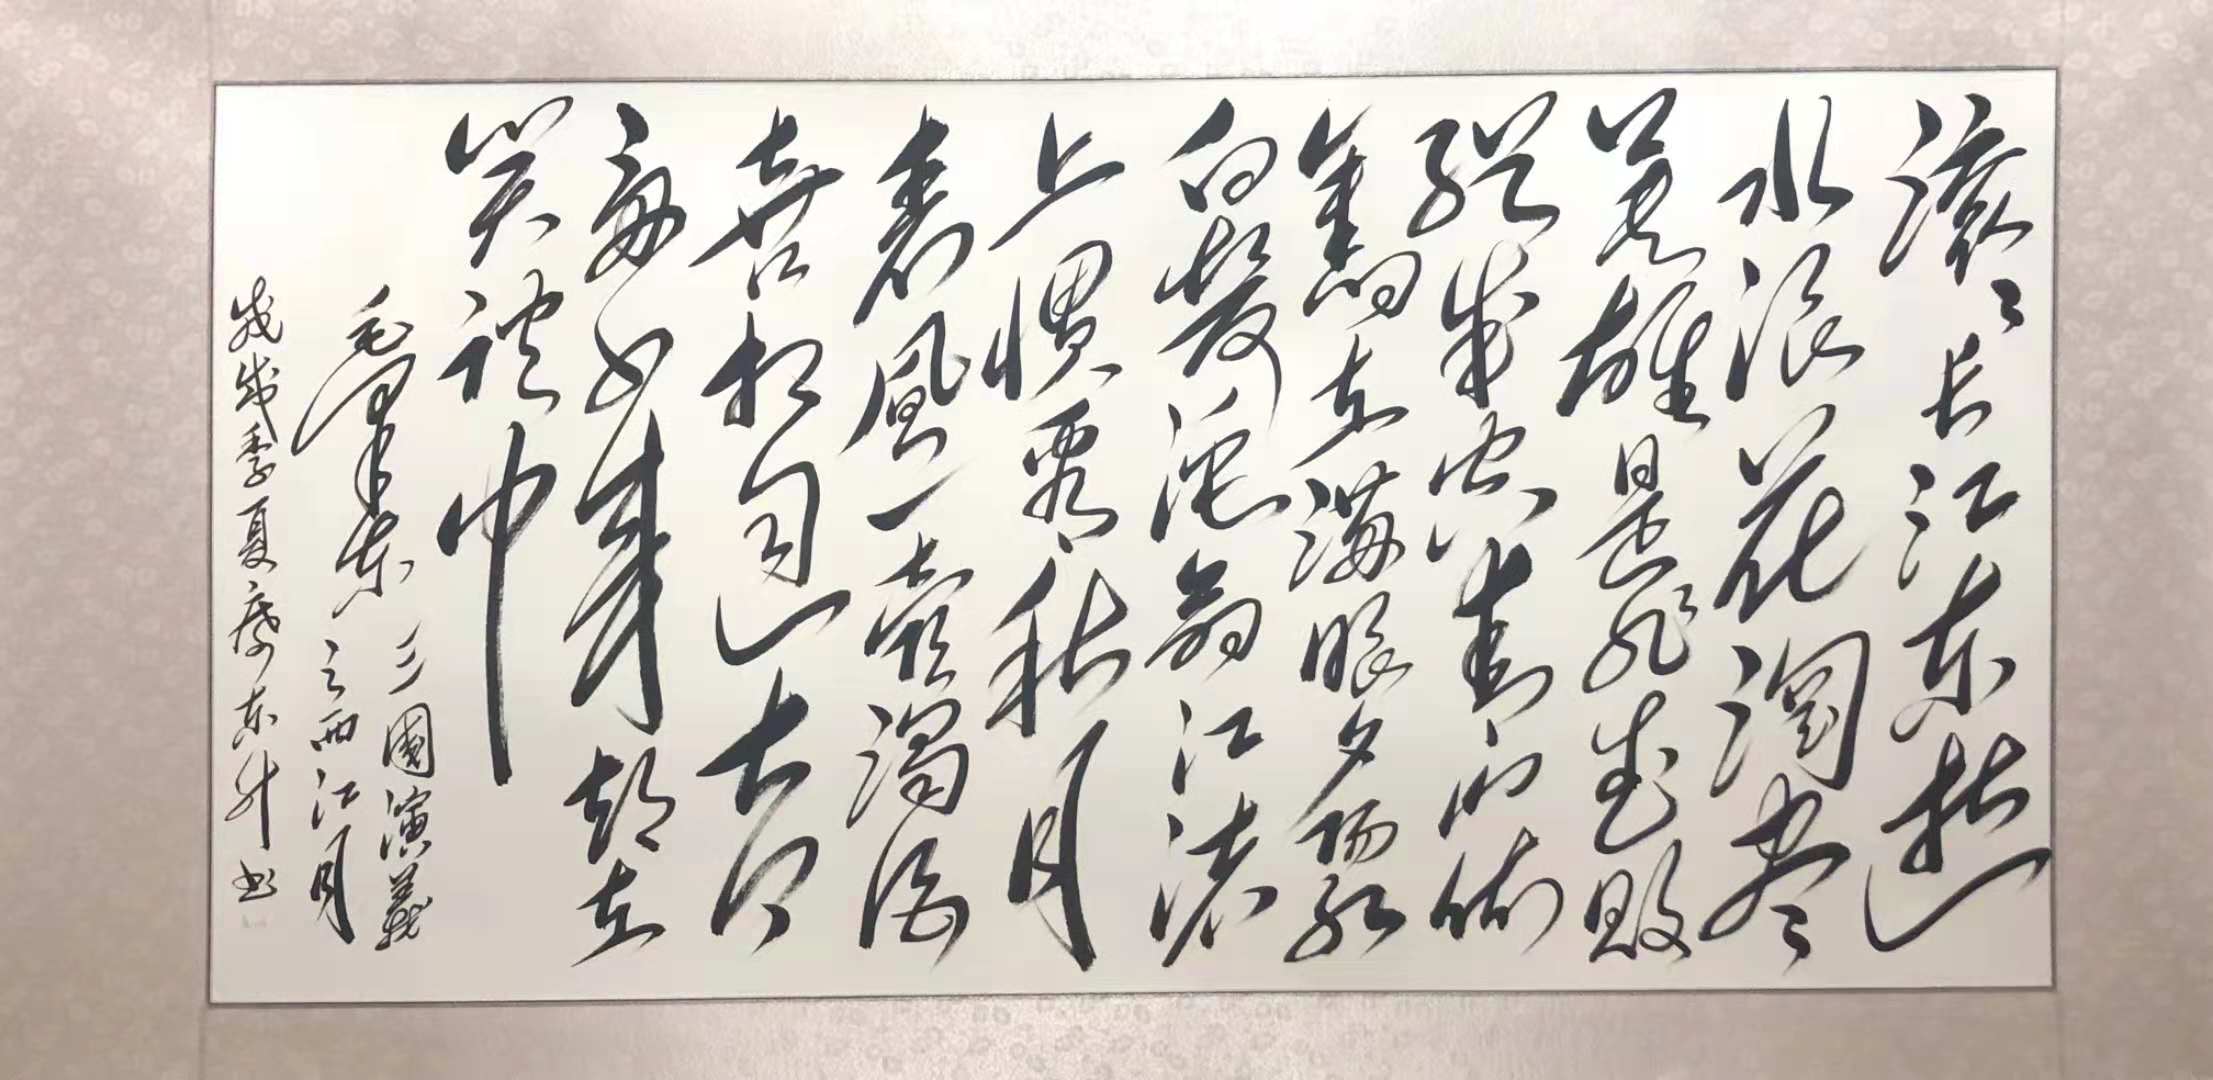 滚々长江东逝
水浪花淘尽
英雄是非成败
转头空青山依
舊在满眼夕阳红
白发渔翁江渚
上惯看秋月
春风一壶浊酒
喜相逢古今
多少事都在
笑谈中
毛泽东 三國演義
之西江月
戊戌季夏廖东升书